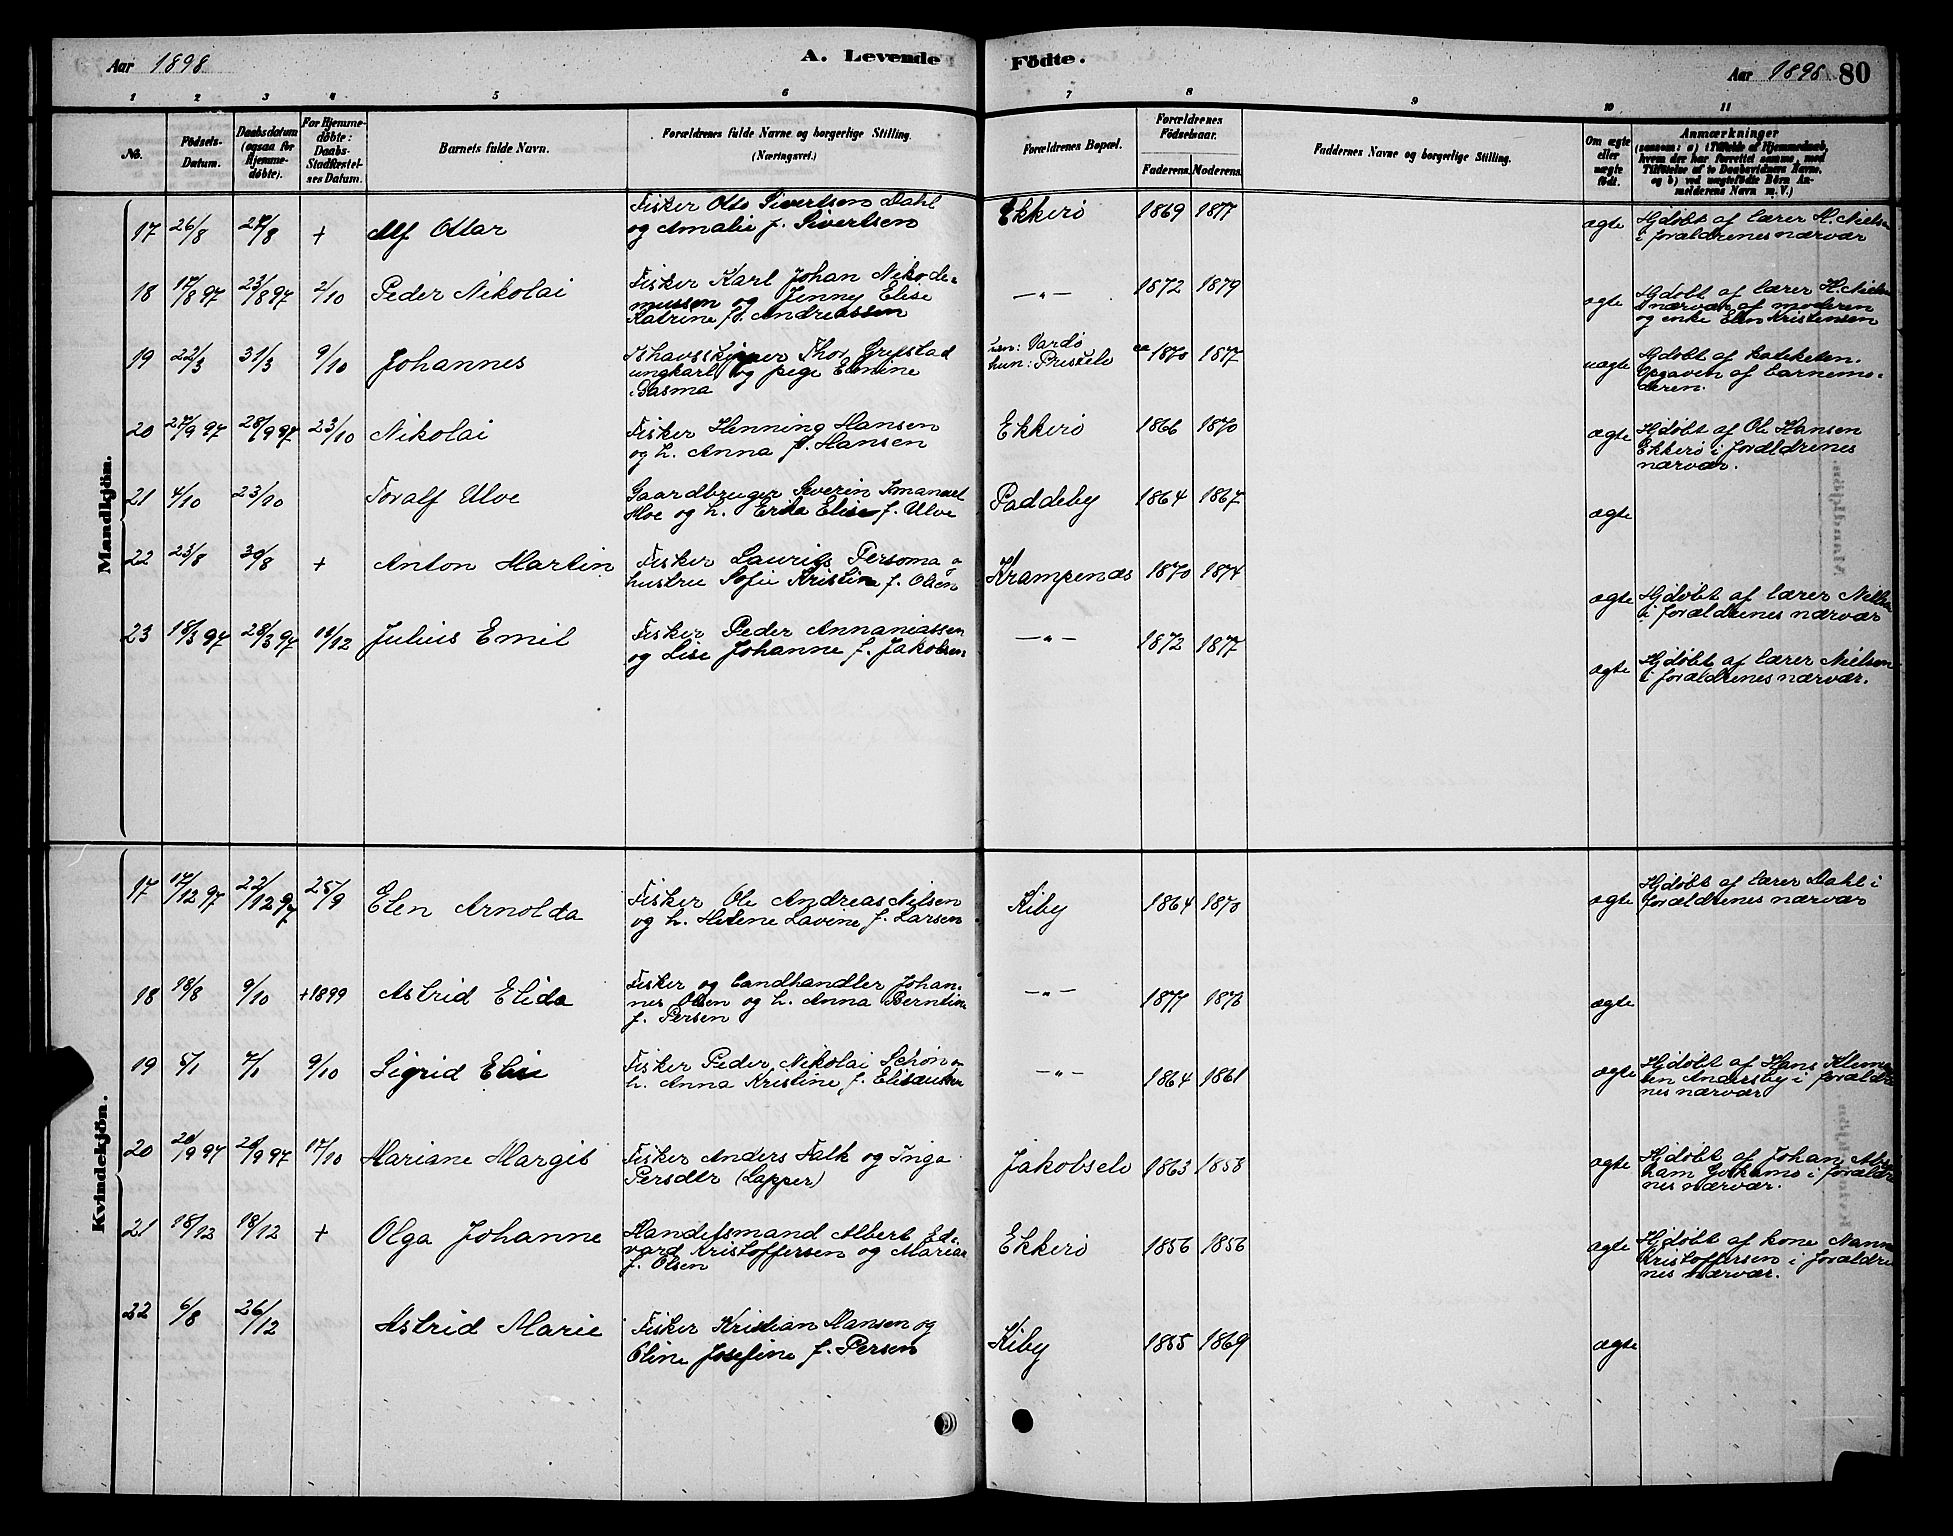 Aar 1898
A. Levende
Fødte.
Aar 1898
80
1 2 3 4 5 6 7 8 9 10 11
No.
Fødsels-Datum.
Daabsdatum (ogsaa for Hjemme-døbte).
For Hjemme-døbte: Daabs-Stadfæstel-ses Datum.
Barnets fulde Navn.
Forældrenes fulde Navne og borgerlige Stilling.
(Næringsvei.)
Forældrenes Bopæl.
Forældrenes Fødselsaar.
Faderens. Moderens.
Faddernes Navne og borgerlige Stilling.
Om ægte eller uægte født.
Anmærkninger
(saasom: a) i Tilfælde af Hjemmedaab,
hvem der har forrettet samme, med
Tilføielse af to Daabsvidners Navne,
og b) ved uægtefødte Børn An-
melderens Navn m. V.)
Mandkjön.
17 26/8 27/8 + Alf Ottar
Fisker Otto Sivertsen Dahl
og Amalie f. Sivertsen
Ekkerö 1869 1877 ægte
Hjdöbt af lærer H. Nielsen
i forældrenes nærvær
18 17/8 97 23/8 97 2/10 Peder Nikolai
Fisker Karl Johan Nikode-
mussen og Jenny Elise
Katrine f. Andreassen
—„— 1872 1879 ægte
Hjdöbt af lærer H. Nielsen
i nærvær af moderen
og enke Elen Kristensen
19 22/3 31/3 9/10 Johannes
Ishavsskipper Thor Grefstad
ungkarl og pige Elmine
Gasma
han: Vardö
hun: Pristele
ca 1870 1877 uægte
Hjdöbt af kateketen.
Opgaven af barnemo-
deren.
20 27/9 97 28/9 97 23/10 Nikolai
Fisker Henning Hansen
og h. Anna f. Hansen
Ekkerö 1866 1870 ægte
Hjdöbt af Ole Hansen
Ekkerö i forældrenes
nærvær.
21 4/10 23/10 Toralf Ulve
Gaardbruger Severin Imanuel
Moe og h. Erika Elise f. Ulve
Paddeby 1864 1867 ægte
22 23/8 30/8 + Anton Martin
Fisker Laurits Persoma o
hustru Sofie Kristine f. Olsen
Krampenæs 1870 1874 ægte
Hjdöbt af lærer Nielsen
i forældrenes nærvær
23 18/3 97 28/3 97 11/12 Julius Emil
Fisker Peder Annaniassen
og Lise Johanne f. Jakobsen
—„— 1872 1877 ægte
Hjdöbt af lærer Nielsen
i forældrenes nærvær.
Kvindekjön.
17 17/12 97 22/12 97 25/9 Elen Arnolda
Fisker Ole Andreas Nilsen
og h. Helene Lavine f. Larsen
Kiby 1864 1870 ægte
Hjdöbt af lærer Dahl i
forældrenes nærvær
18 18/8 9/10 +1899 Astrid Elida
Fisker og Landhandler Johan-
nes Olsen og h. Anna Berntine
f. Persen
—„— 1877 1873 ægte
19 5/1 7/1 9/10 Sigrid Elise
Fisker Peder Nikolai Schön o
h. Anna Kristine f. Eliseussen
—„— 1864 1861 ægte
Hjdöbt af Hans Klem
sen Andersby i forældre
nes nærvær
20 20/9 97 29/9 97 17/10 Mariane Margit
Fisker Anders Falk og Inga
Persdtr (Lapper)
Jakobselv 1863 1858 ægte
Hjdöbt af Johan Abra
ham i forældre
nes nærvær.
21 18/12 18/12 + Olga Johanne
Handelsmand Albert Ed-
vard Kristoffersen og Marian
f. Olsen
Ekkerö 1856 1856 ægte
Hjdöbt af kone Nanna
Kristoffersen i forældre
nes nærvær.
22 6/8 26/12 Astrid Marie
Fisker Kristian Hansen og
Oline Josefine f. Persen
Kiby 1865 1869 ægte